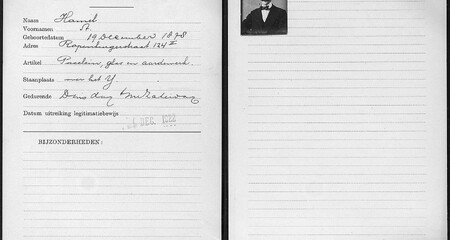 Naam Hamel
Voornamen A.
Geboortedatum 19 December 1878
Adres Rapenburgerstraat 124 I
Artikel Porselein, glas en aardewerk.
Staanplaats over het Y
Gedurende
Datum uitreiking legitimatiebewijs DEC. 1922
BIJZONDERHEDEN: